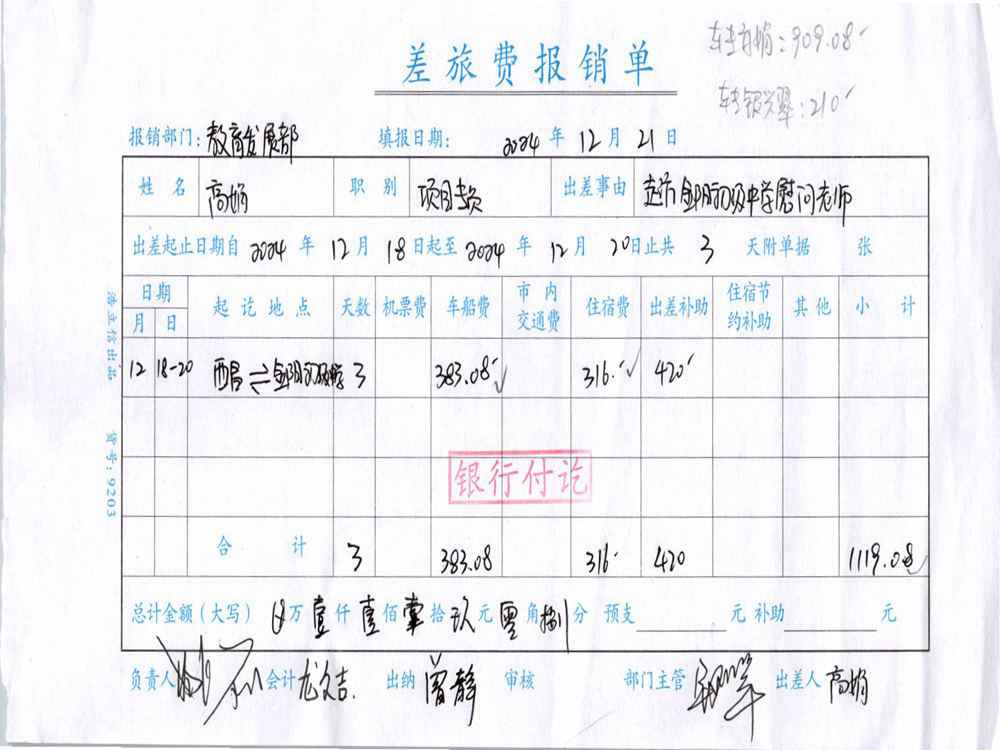 :909.08
:210
差旅费报销单
报销部门: 教育发展部 填报日期: 2024 年 12 月 21 日
姓名 高娟 职别 项目专员 出差事由 赴 初级中学慰问老师
出差起止日期自 2024 年 12 月 18 日起至 2024 年 12 月 20 日止共 3 天附单据 张
日期 起讫地点 天数 机票费 车船费 市内交通费 住宿费 出差补助 住宿节约补助 其他 小计
月 日
12 18-20 西昌⇌金阳初级中学 3 383.08 316. 420
银行付讫
合计 3 383.08 316. 420 1119.08
总计金额(大写) 万 壹 仟 壹 佰 壹 拾 玖 元 零 角 捌 分 预支 元 补助 元
负责人 会计 龙久吉 出纳 曾静 审核 部门主管 出差人 高娟
货号:9203